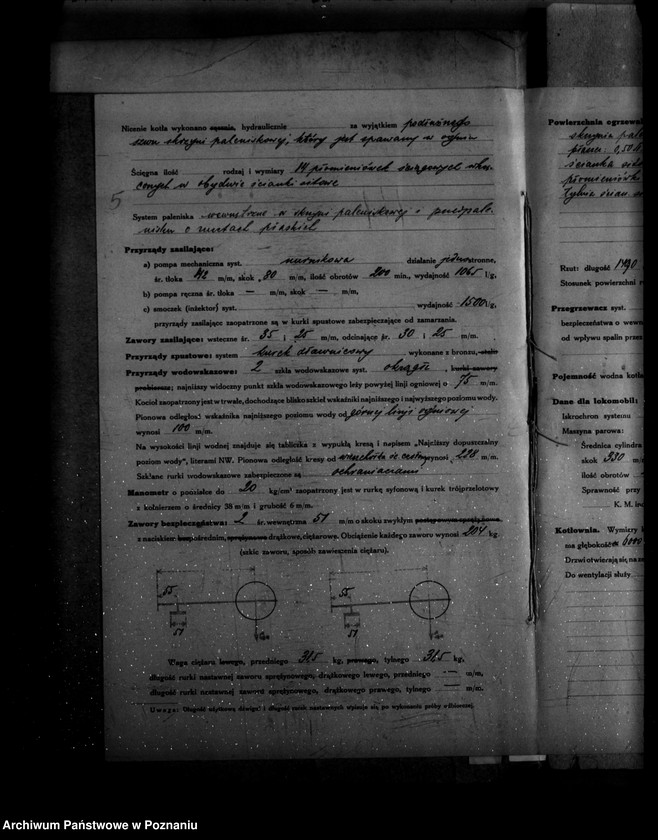 Nitenie kotła wykonano ręcznie, hydraulicznie za wyjątkiem podłużnego
szwu skrzyni paleniskowej, który jest spawany w ogniu
Ściągna ilość rodzaj i wymiary 14 płomieniówek
w obydwie ścianki sitowe
5
System paleniska wewnętrzne w skrzyni paleniskowej
o rusztach płaskich
Przyrządy zasilające:
a) pompa mechaniczna syst. nurnikowa działanie jednostronne,
śr. tłoka 42 m/m, skok 80 m/m, ilość obrotów 200 min., wydajność 1065 l/g,
b) pompa ręczna śr. tłoka — m/m, skok — m/m,
c) smoczek (inżektor) syst. wydajność 1500 l/g,
przyrządy zasilające zaopatrzone są w kurki spustowe zabezpieczające od zamarzania.
Zawory zasilające: wsteczne śr. 35 i 25 m/m, odcinające śr. 30 i 25 m/m.
Przyrządy spustowe: system kurek dławnicowy wykonane z bronzu, stali
Przyrządy wodowskazowe: 2 szkła wodowskazowe syst. okrągłe, kurki zawory
probiercze; najniższy widoczny punkt szkła wodowskazowego leży powyżej linji ogniowej o 75 m/m.
Kocioł zaopatrzony jest w trwałe, dochodzące blisko szkieł wskaźniki najniższego i najwyższego poziomu wody.
Pionowa odległość wskaźnika najniższego poziomu wody od górnej linji ogniowej
wynosi 100 m/m.
Na wysokości linji wodnej znajduje się tabliczka z wypukłą kresą i napisem „Najniższy dopuszczalny
poziom wody", literami NW. Pionowa odległość kresy od wynosi 228 m/m.
Szklane rurki wodowskazowe zabezpieczone są ochraniaczami
Manometr o podziałce do 20 kg/cm² zaopatrzony jest w rurkę syfonową i kurek trójprzelotowy
z kołnierzem o średnicy 38 m/m i grubość 6 m/m.
Zawory bezpieczeństwa: 2 śr. wewnętrzna 51 m/m o skoku zwykłym postępowym sprężynowe
z naciskiem bezpośrednim, sprężynowe drążkowe, ciężarowe. Obciążenie każdego zaworu wynosi 204 kg
(szkic zaworu, sposób zawieszenia ciężaru).
55
51
55
51
Waga ciężaru lewego, przedniego 31,5 kg, prawego, tylnego 31,5 kg,
długość rurki nastawnej zaworu sprężynowego, drążkowego lewego, przedniego — m/m,
długość rurki nastawnej zaworu sprężycowego, drążkowego prawego, tylnego — m/m.
Uwaga: Długość użytkową dźwigni i długość rurek nastawnych wpisuje się, po wykonaniu próby odbiorczej.
Powierzchnia ogrzewa
skrzynia pale
ścianka sito
płomieniówki
Rzut: długość 1490
Stosunek powierzchni r
Przegrzewacz syst.
bezpieczeństwa o wewn
od wpływu spalin przez
Pojemność wodna kotła
Dane dla lokomobil:
Iskrochron systemu
Maszyna parowa:
Średnica cylindra
skok 330 m
ilość obrotów
Sprawność przy
K. M. inc
Kotłownia. Wymiary k
ma głębokość 6000
Drzwi otwierają się na ze
Do wentylacji służy
Archiwum Państwowe w Poznaniu